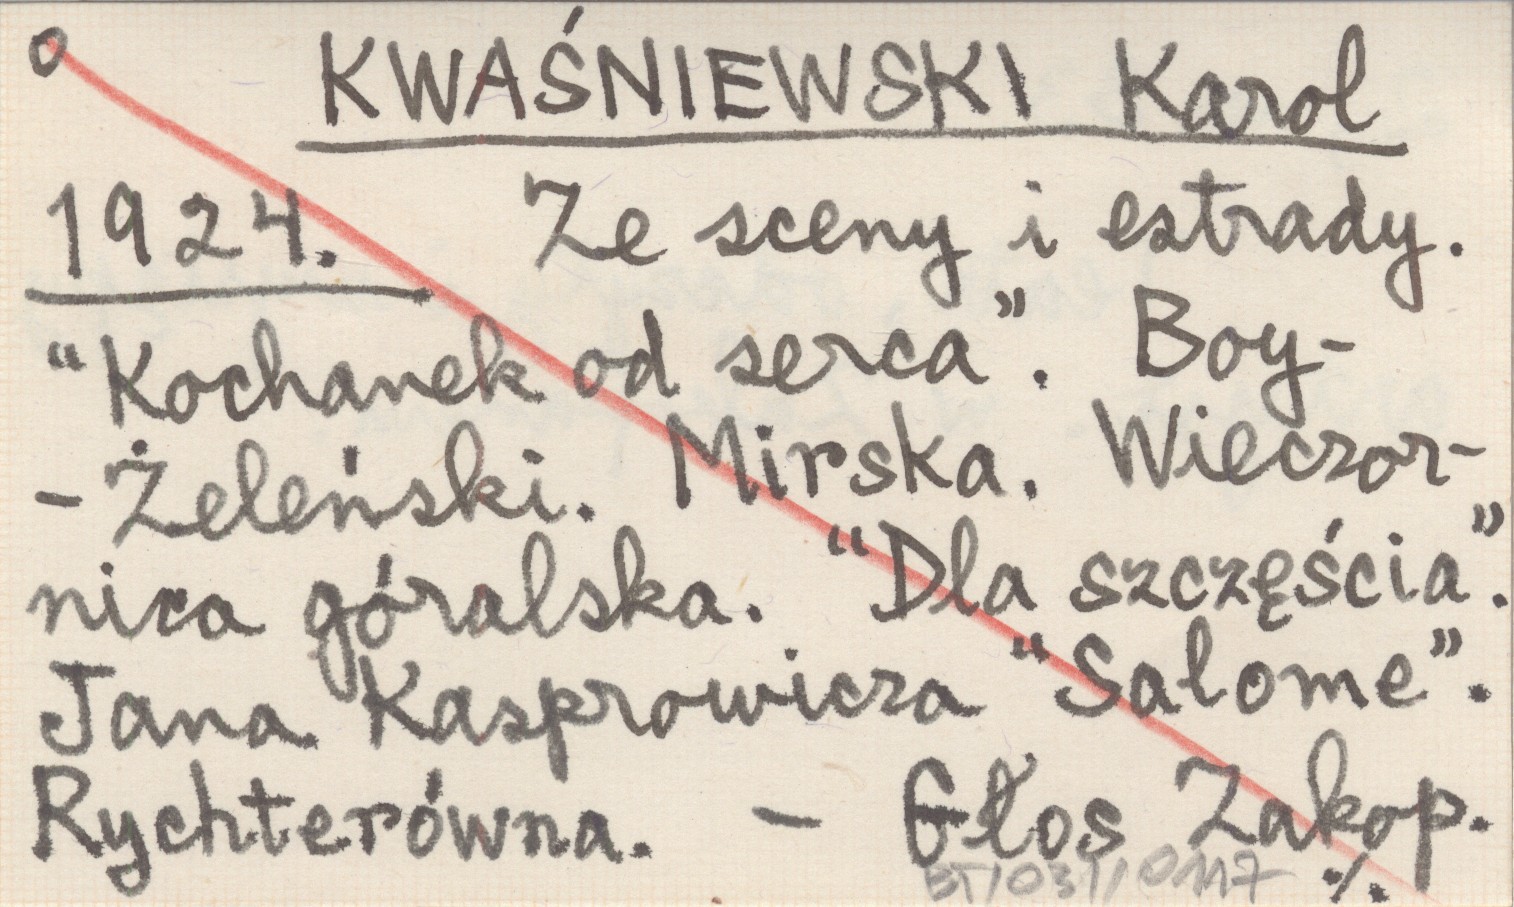 KWAŚNIEWSKI Karol
1924. Ze sceny i estrady.
"Kochanek od serca". Boy-
-Żeleński. Mirska. Wieczor-
nica góralska. "Dla szczęścia".
Jana Kasprowicza "Salome".
Rychterówna. - Głos Zakop.
BT/031/0117 ·/.